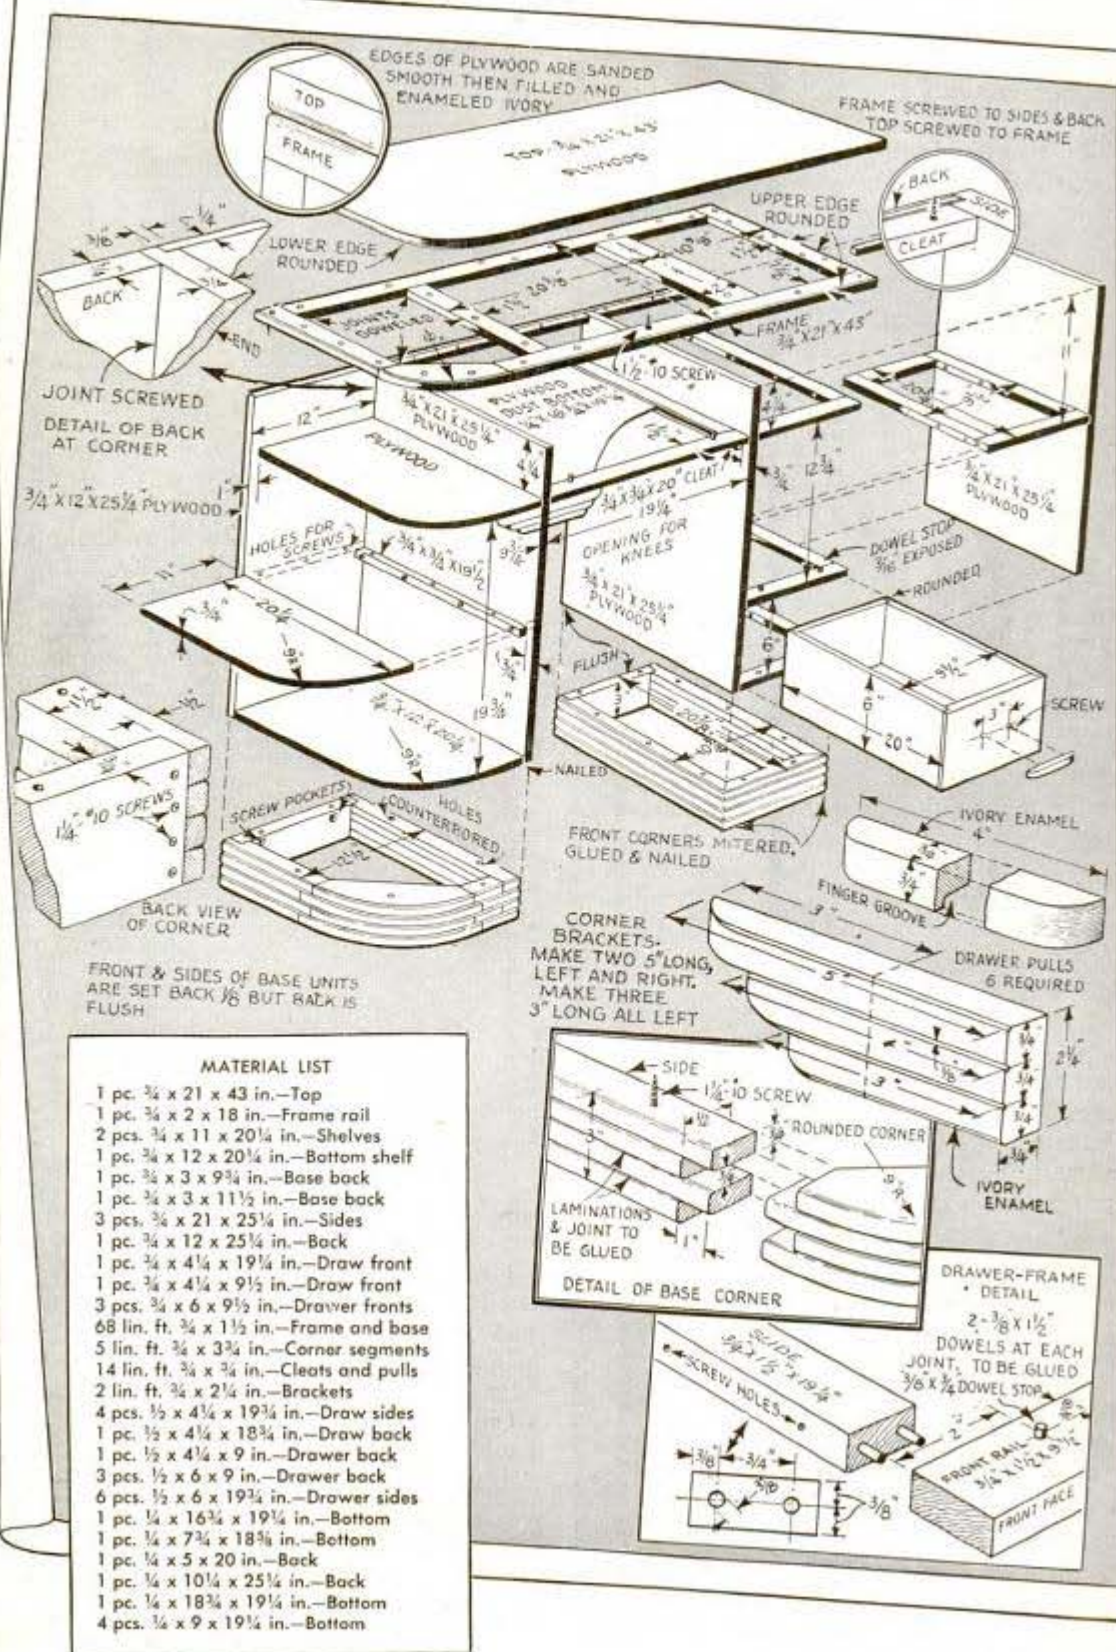 EDGES OF PLYWOOD ARE SANDED
SMOOTH THEN FILLED AND
ENAMELED IVORY
TOP
FRAME
TOP, 3/4 X 21" X 43"
PLYWOOD
FRAME SCREWED TO SIDES & BACK
TOP SCREWED TO FRAME
BACK
SIDE
CLEAT
UPPER EDGE
ROUNDED
LOWER EDGE
ROUNDED
3/8"
1/4"
3/4"
BACK
END
JOINT SCREWED
DETAIL OF BACK
AT CORNER
JOINTS
DOWELED
1 1/2
20 1/8"
FRAME
3/4" X 21" X 43"
1 1/2"-10 SCREW
11"
12"
3/4" X 21 X 25 1/4"
PLYWOOD
PLYWOOD
DUST BOTTOM
PLYWOOD
4 1/4
3/4" X 12" X 25 1/4" PLYWOOD
1"
3/4 X 3/4 X 20" CLEAT
19 1/4"
3/4"
12 3/4"
3/4" X 21 X 25 1/4"
PLYWOOD
HOLES FOR
SCREWS
3/4" X 3/4" X 19 1/2"
9 3/4"
OPENING FOR
KNEES
3/4" X 21 X 25 1/4"
PLYWOOD
DOWEL STOP
3/16" EXPOSED
ROUNDED
11"
20 1/4"
3/4"
9"R
3/4"
FLUSH
6"
9 1/2"
SCREW
3"
6"
20"
3/4" X 12" X 20 1/4"
19 3/4"
9"R
1 1/2"
1 1/2"
1 1/4" #10 SCREWS
BACK VIEW
OF CORNER
NAILED
SCREW POCKETS
HOLES
COUNTERBORED
12 1/2
3"
FRONT CORNERS MITERED,
GLUED & NAILED
IVORY ENAMEL
4"
3/4"
3/4"
FINGER GROOVE
DRAWER PULLS
6 REQUIRED
FRONT & SIDES OF BASE UNITS
ARE SET BACK 1/8 BUT BACK IS
FLUSH
CORNER
BRACKETS.
MAKE TWO 5" LONG,
LEFT AND RIGHT.
MAKE THREE
3" LONG ALL LEFT
3"
5"
4"
3"
3/4
1/8
3/4
3/4
2 1/4"
3/4"
IVORY
ENAMEL
SIDE
1 1/4"-10 SCREW
1/2
3/4"
ROUNDED CORNER
3"
9"R
LAMINATIONS
& JOINT TO
BE GLUED
1"
DETAIL OF BASE CORNER
DRAWER-FRAME
DETAIL
2-3/8 X 1 1/2"
DOWELS AT EACH
JOINT, TO BE GLUED
3/8" X 3/4" DOWEL STOP
SLIDE
3/4" X 1 1/2" X 19 1/4"
SCREW HOLES
2"
3/8"
FRONT RAIL
3/4" X 1 1/2 X 9 1/2"
FRONT FACE
3/8"
3/4"
3/8
3/8"
MATERIAL LIST
1 pc. ¾ x 21 x 43 in.—Top
1 pc. ¾ x 2 x 18 in.—Frame rail
2 pcs. ¾ x 11 x 20¼ in.—Shelves
1 pc. ¾ x 12 x 20¼ in.—Bottom shelf
1 pc. ¾ x 3 x 9¾ in.—Base back
1 pc. ¾ x 3 x 11½ in.—Base back
3 pcs. ¾ x 21 x 25¼ in.—Sides
1 pc. ¾ x 12 x 25¼ in.—Back
1 pc. ¾ x 4¼ x 19¼ in.—Draw front
1 pc. ¾ x 4¼ x 9½ in.—Draw front
3 pcs. ¾ x 6 x 9½ in.—Drawer fronts
68 lin. ft. ¾ x 1½ in.—Frame and base
5 lin. ft. ¾ x 3¾ in.—Corner segments
14 lin. ft. ¾ x ¾ in.—Cleats and pulls
2 lin. ft. ¾ x 2¼ in.—Brackets
4 pcs. ½ x 4¼ x 19¾ in.—Draw sides
1 pc. ½ x 4¼ x 18¾ in.—Draw back
1 pc. ½ x 4¼ x 9 in.—Drawer back
3 pcs. ½ x 6 x 9 in.—Drawer back
6 pcs. ½ x 6 x 19¾ in.—Drawer sides
1 pc. ¼ x 16¾ x 19¼ in.—Bottom
1 pc. ¼ x 7¾ x 18⅝ in.—Bottom
1 pc. ¼ x 5 x 20 in.—Back
1 pc. ¼ x 10¼ x 25¼ in.—Back
1 pc. ¼ x 18¾ x 19¼ in.—Bottom
4 pcs. ¼ x 9 x 19¼ in.—Bottom